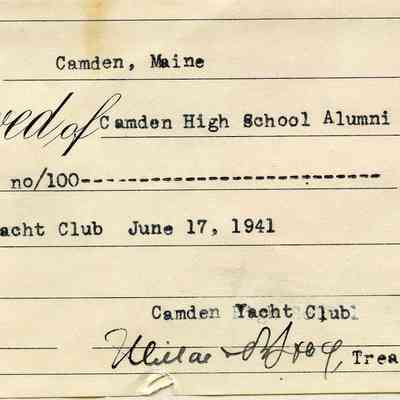 Camden, Maine
ved of Camden High School Alumni
no/100------------------------------
acht Club June 17, 1941
Camden Yacht Club
Treas